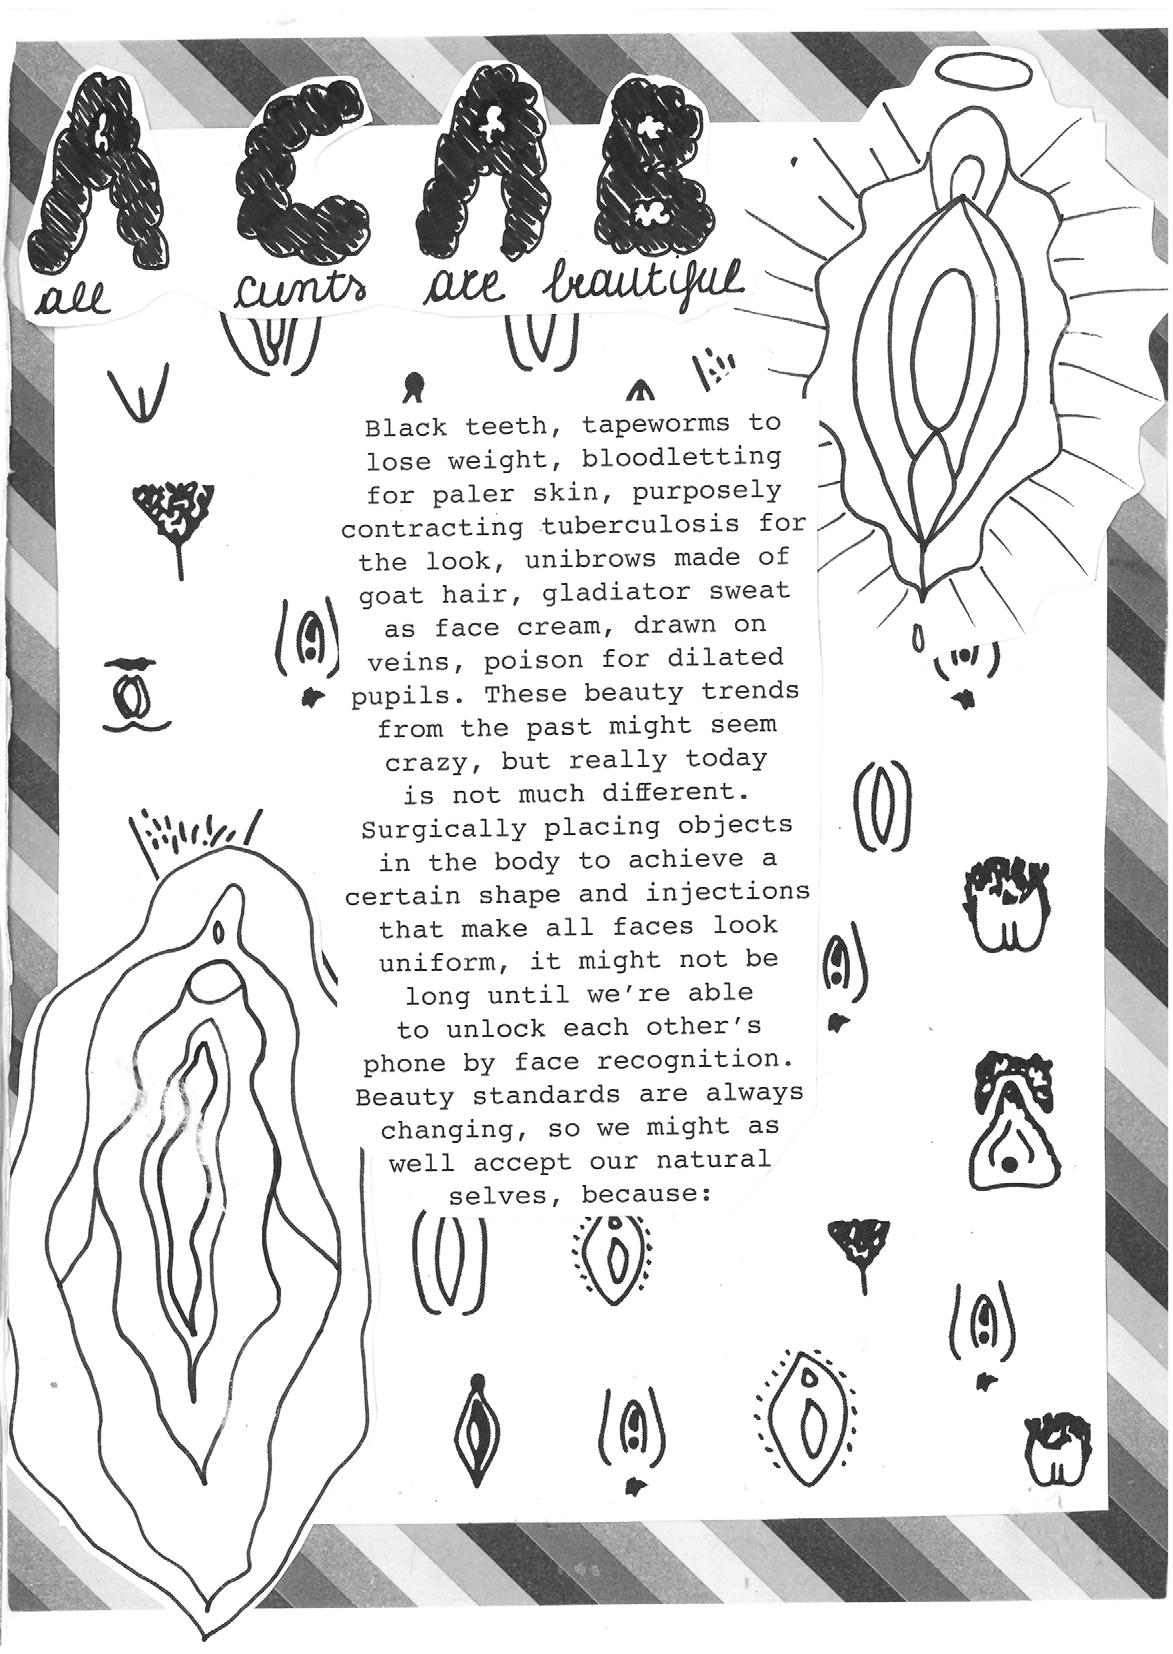 A C A B
all cunts are beautiful
Black teeth, tapeworms to
lose weight, bloodletting
for paler skin, purposely
contracting tuberculosis for
the look, unibrows made of
goat hair, gladiator sweat
as face cream, drawn on
veins, poison for dilated
pupils. These beauty trends
from the past might seem
crazy, but really today
is not much different.
Surgically placing objects
in the body to achieve a
certain shape and injections
that make all faces look
uniform, it might not be
long until we're able
to unlock each other's
phone by face recognition.
Beauty standards are always
changing, so we might as
well accept our natural
selves, because: